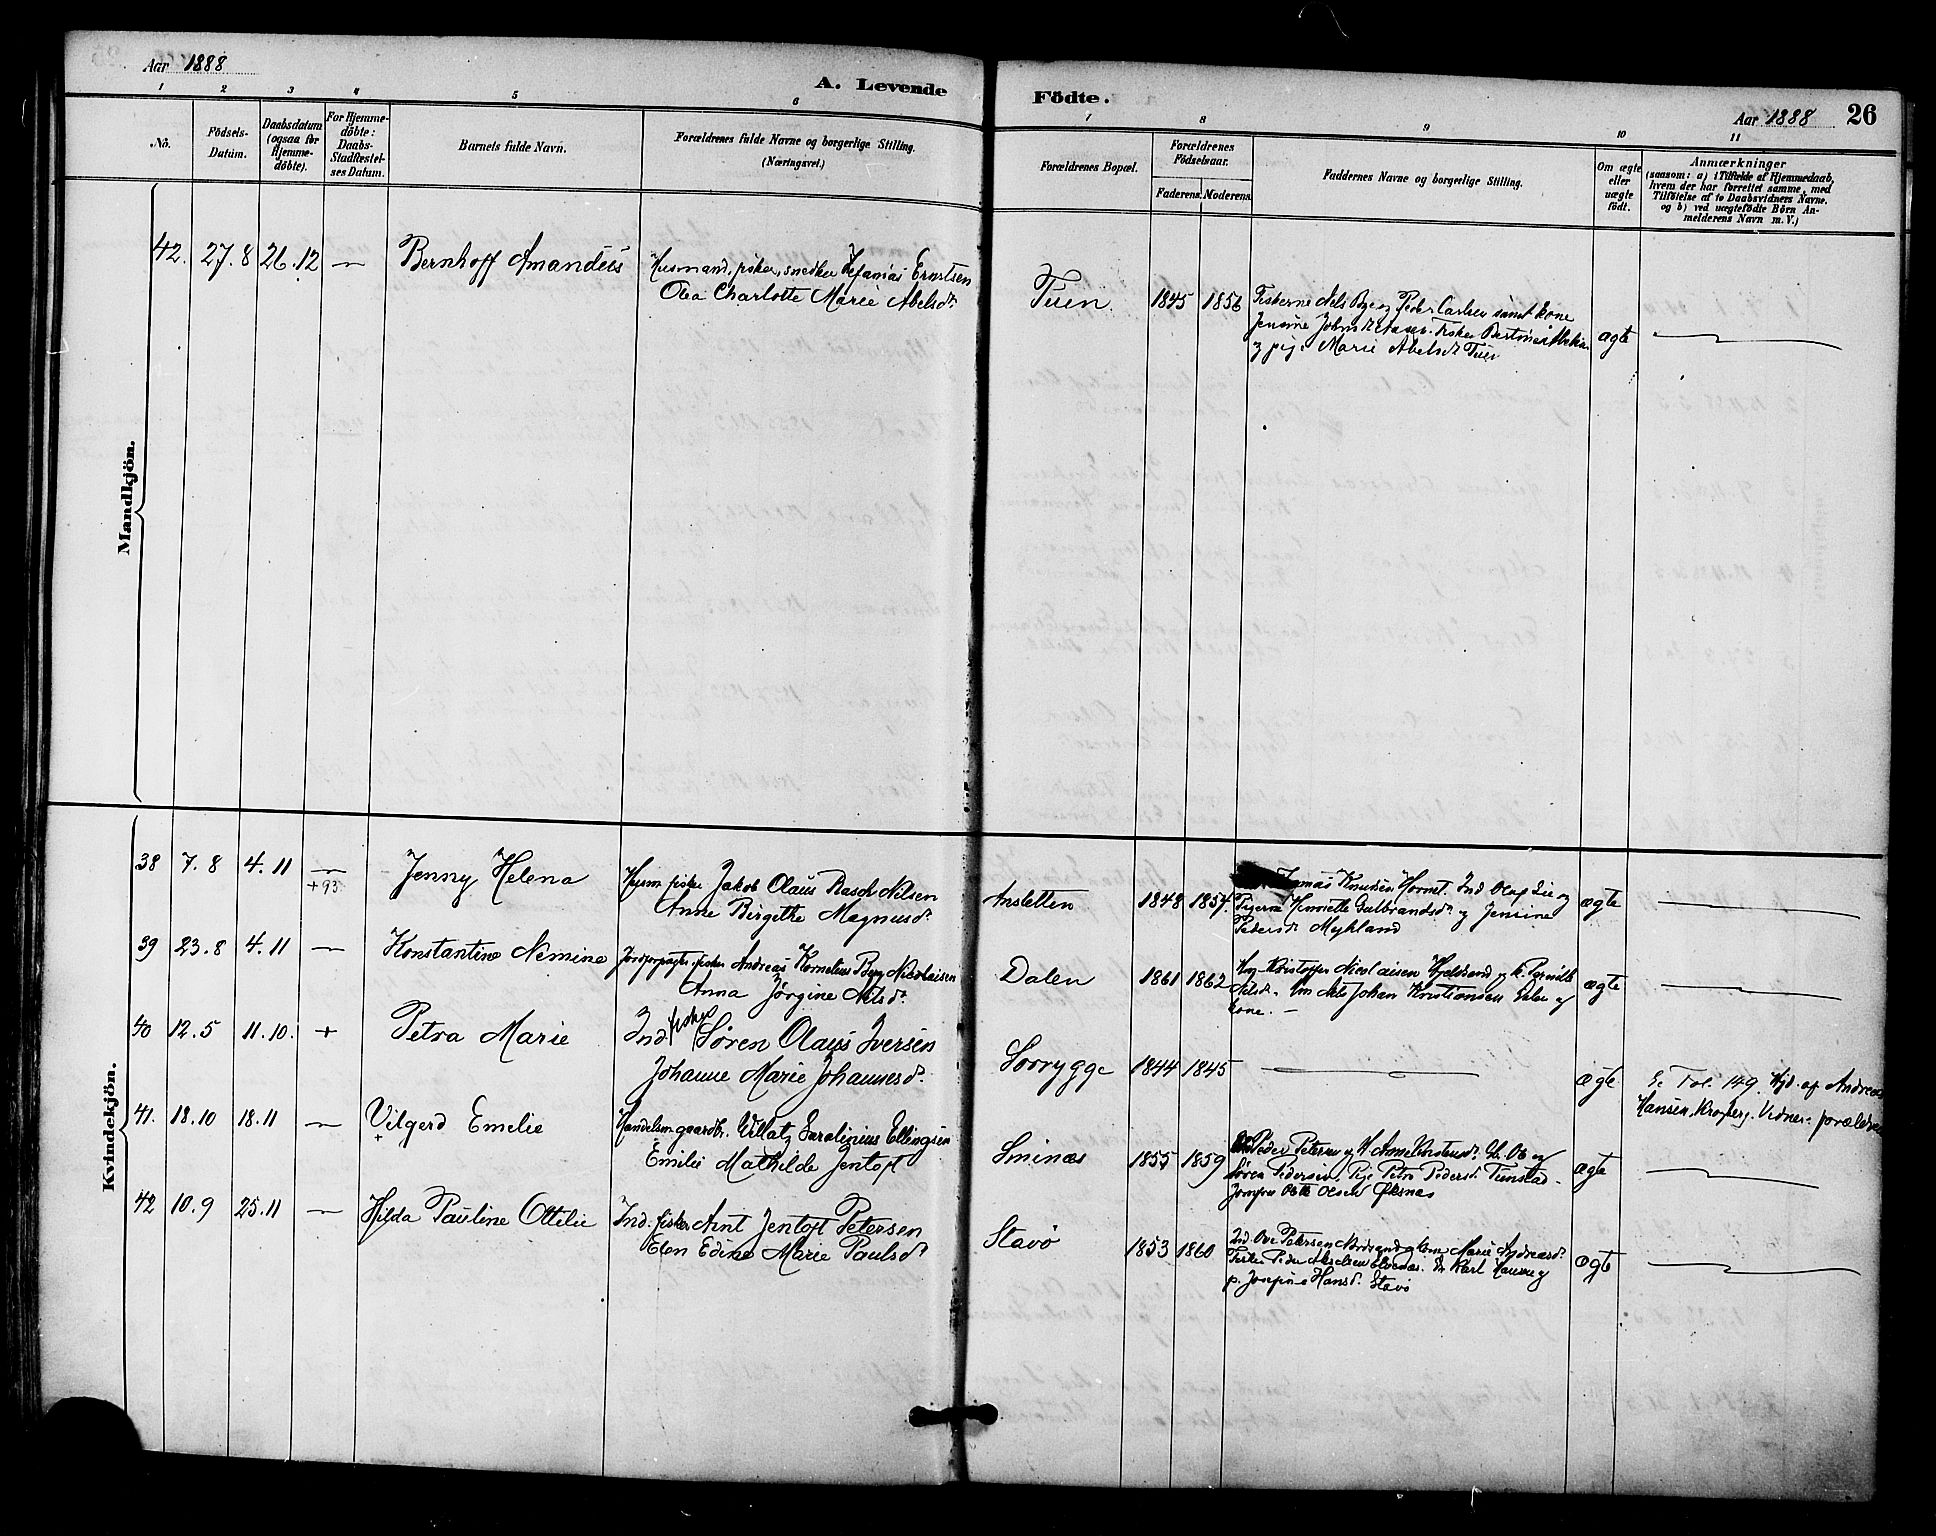 Aar 1888
A. Levende
Födte.
Aar 1888 26
1 2 3 4 5 6 7 8 9 10 11
No.
Födsels-
Datum.
Daabsdatum
(ogsaa for
Hjemme-
döbte).
For Hjemme-
döbte:
Daabs-
Stadfæstel-
ses Datum.
Barnets fulde Navn.
Forældrenes fulde Navne og borgerlige Stilling.
(Næringsvei.)
Forældrenes Bopæl.
Forældrenes
Födselsaar.
Faderens. Moderens.
Faddernes Navne og borgerlige Stilling.
Om ægte
eller
uægte
födt.
Anmærkninger
(saasom: a) i Tilfælde af Hjemmedaab,
hvem der har forrettet samme, med
Tilföielse af to Daabsvidners Navne.
og b) ved uægtefödte Börn An-
melderens Navn m. V.)
Mandkjön.
42. 27.8 26.12 — Bernhoff Amandeus
Husmand, fisker, snedker Zefanias Ernstsen
Olea Charlotte Marie Abelsdr
Tuen. 1845 1856
Fiskerne Nels Bye og Peder Carlsen samt kone
Jensine
og pige Marie Abelsdr Tuen
ægte
Kvindekjön.
38 7.8 4.11 — Jenny Helena
+93
fisker Jakob Olaus Rasch Nilsen
Anne Birgitte Magnusdr
Ansletten 1848 1854.
Tomas Knudsen Hornet. Ind Olaf Lie og
Pigerne Henriette Gulbrandsdr og Jensine
Pedersdr Mykland
ægte
39 23.8 4.11 — Konstantine Nemine
Jordforpagter, fisker Andreas Kornelius Byg Nikolaisen
Anna Jørgine Nilsdr
Dalen 1861 1862
Kristoffer Nicolaisen Hjelsand og k. Pernille
Nilsdr. Nils Johan Kristiansen Dalen og
kone. —
ægte
40 12.5 11.10. + Petra Marie
Ind. fisker Søren Olaus Iversen
Johanne Marie Johannesdr.
Sorrygge 1844 1845
ægte
Se Fol. 149. Hjd. af Andreas
Hansen, Vidner: forældre
41. 18.10 18.11 — Vilgerd Emelie
+
Handelsm. gaardbr. Willatz Saralinius Ellingsen
Emilie Mathilde Jentoft
Sminæs 1855 1859
Peder Petersen og
Søren Pedersen, Pige Petra Pedersdr Tunstad.
Jomfru Olsen Øksnæs
ægte
42 10.9 25.11 — Hilda Pauline Ottelie
Ind. fisker Arnt Jentoft Petersen
Elen Edine Marie Paulsdr
Stavø 1853 1860
Ind. Ove Petersen Nordsand og kone Marie Andreasdr
Fisker Peder Karl Hansen og
p. Josefine Hansdr. Stavø
ægte